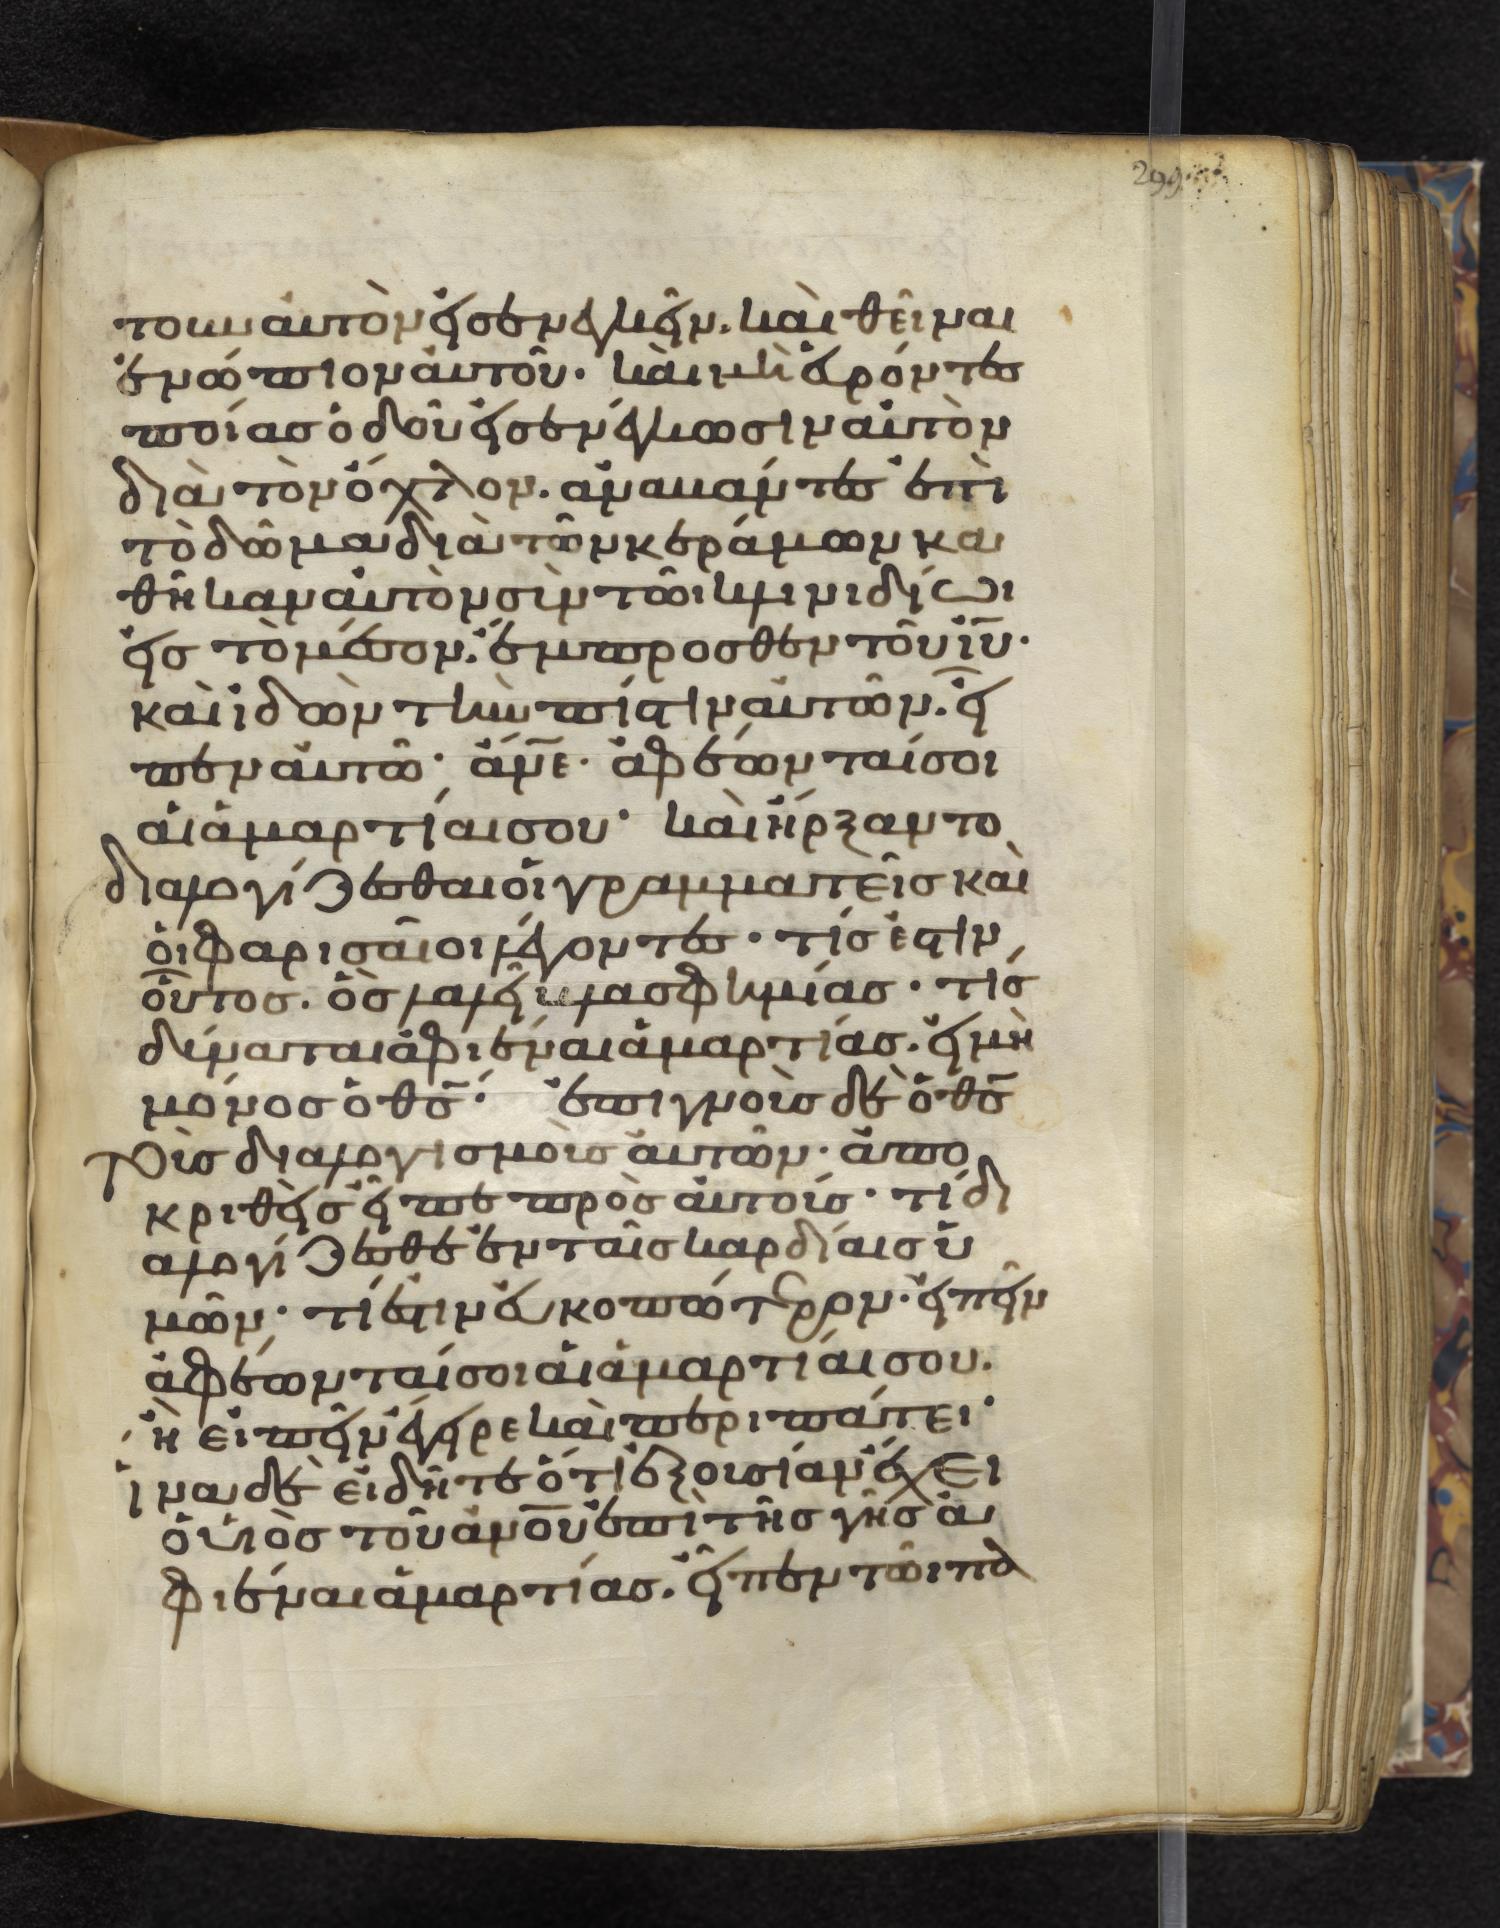 299
τουν αὐτὸν εἰσενεγκεῖν. καὶ θεῖναι
ἐνώπιον αὐτοῦ· καὶ μὴ εὑρόντες
ποίας ὁδοῦ εἰσενέγκωσιν αὐτὸν
διὰ τὸν ὄχλον. ἀναβάντες ἐπὶ
τὸ δῶμα διὰ τῶν κεράμων κα
θῆκαν αὐτὸν σὺν τῶι κλινιδίωι
εἰς τὸ μέσον. ἔμπροσθεν τοῦ ἰῦ·
καὶ ἰδὼν τὴν πίστιν αὐτῶν. εἶ
πεν αὐτῶ· ἄνε· ἀφέωνταί σοι
αἱ ἁμαρτίαι σου· καὶ ἤρξαντο
διαλογίζεσθαι οἱ γραμματεῖς καὶ
οἱ φαρισαῖοι λέγοντες· τίς ἐστιν
οὗτος. ὃς λαλεῖ βλασφημίας· τίς
δύναται ἀφιέναι ἁμαρτίας. εἰ μὴ
μόνος ὁ θς· ἐπιγνοὺς δὲ ὁ θς
τοὺς διαλογισμοὺς αὐτῶν· ἀπο
κριθεὶς εἶπε πρὸς αὐτούς· τί δι
αλογίζεσθε ἐν ταῖς καρδίαις ὑ
μῶν· τί ἐστιν εὐκοπώτερον· εἰπεῖν
ἀφέωνταί σοι αἱ ἁμαρτίαι σου.
ἢ εἰπεῖν ἔγειρε καὶ περιπάτει·
ἵνα δὲ εἰδῆτε ὅτι ἐξουσίαν ἔχει
ὁ υἱὸς τοῦ ἀνου ἐπὶ τῆς γῆς ἀ
φιέναι ἁμαρτίας. εἶπεν τῶι πα